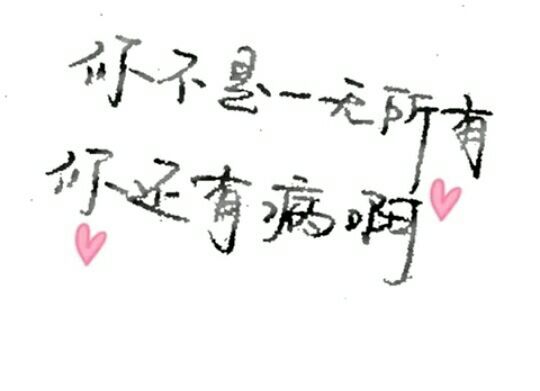 你不是一无所有
你还有病啊